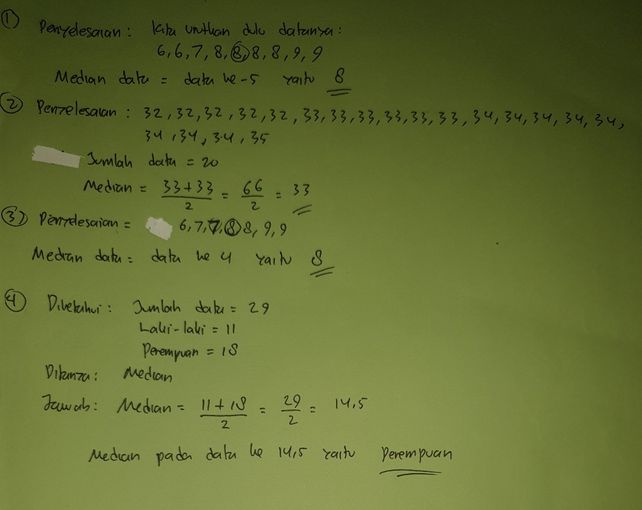 ① Penyelesaian : kita urutkan dulu datanya :
6, 6, 7, 8, 8, 8, 8, 9, 9
Median data = data ke-5 yaitu 8
② Penyelesaian : 32, 32, 32, 32, 32, 33, 33, 33, 33, 33, 33, 34, 34, 34, 34, 34,
34, 34, 34, 35
Jumlah data = 20
Median = 33+33/2 = 66/2 = 33
③ Penyelesaian = 6, 7, 7, 8, 8, 9, 9
Median data = data ke 4 yaitu 8
④ Diketahui : Jumlah data = 29
Laki-laki = 11
Perempuan = 18
Ditanya : Median
Jawab : Median = 11+18/2 = 29/2 = 14,5
Median pada data ke 14,5 yaitu Perempuan